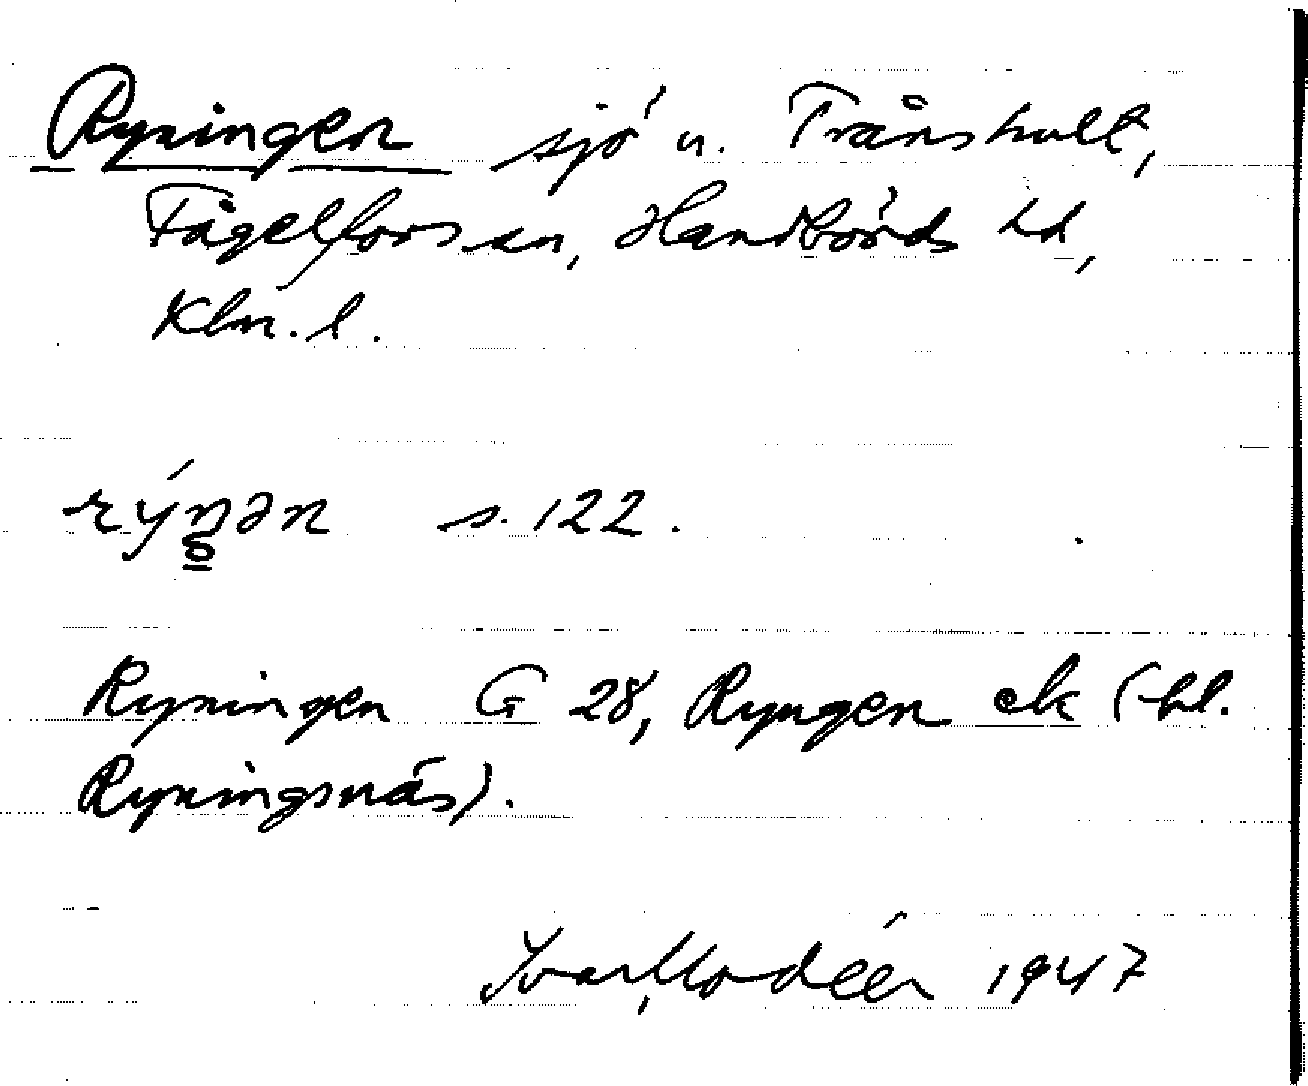 Ryningen sjö n. Trånshult,
Fågelfors sn, Handbörds hd,
Klm. l.
rýŋən s. 122.
Ryningen G 28, Ryngen ek (bl.
Ryningsnäs).
Ivar Modéer 1947